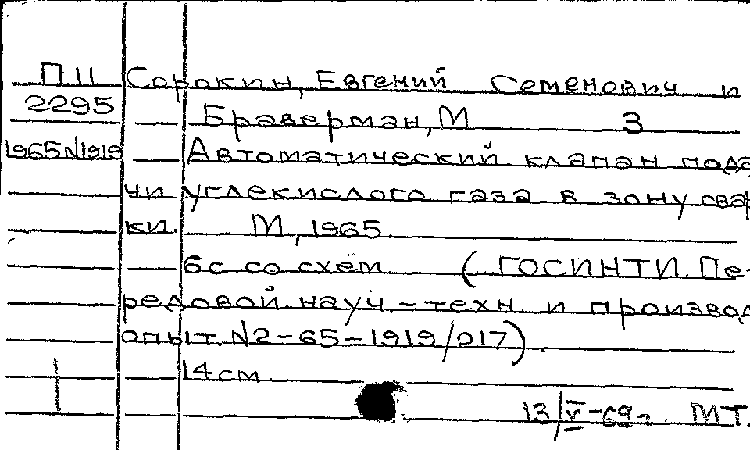 П II Сорокин, Евгений Семенович и
2295 Браверман, М З
1965 N1919 Автоматический клапан пода
чи углекислого газа в зону свар
ки. М, 1965
6с со схем (ГОСИНТИ. Пе-
редовой науч-техн и производ
опыт. N2-65-1919/017).
14 см
13/V-69г. МТ.